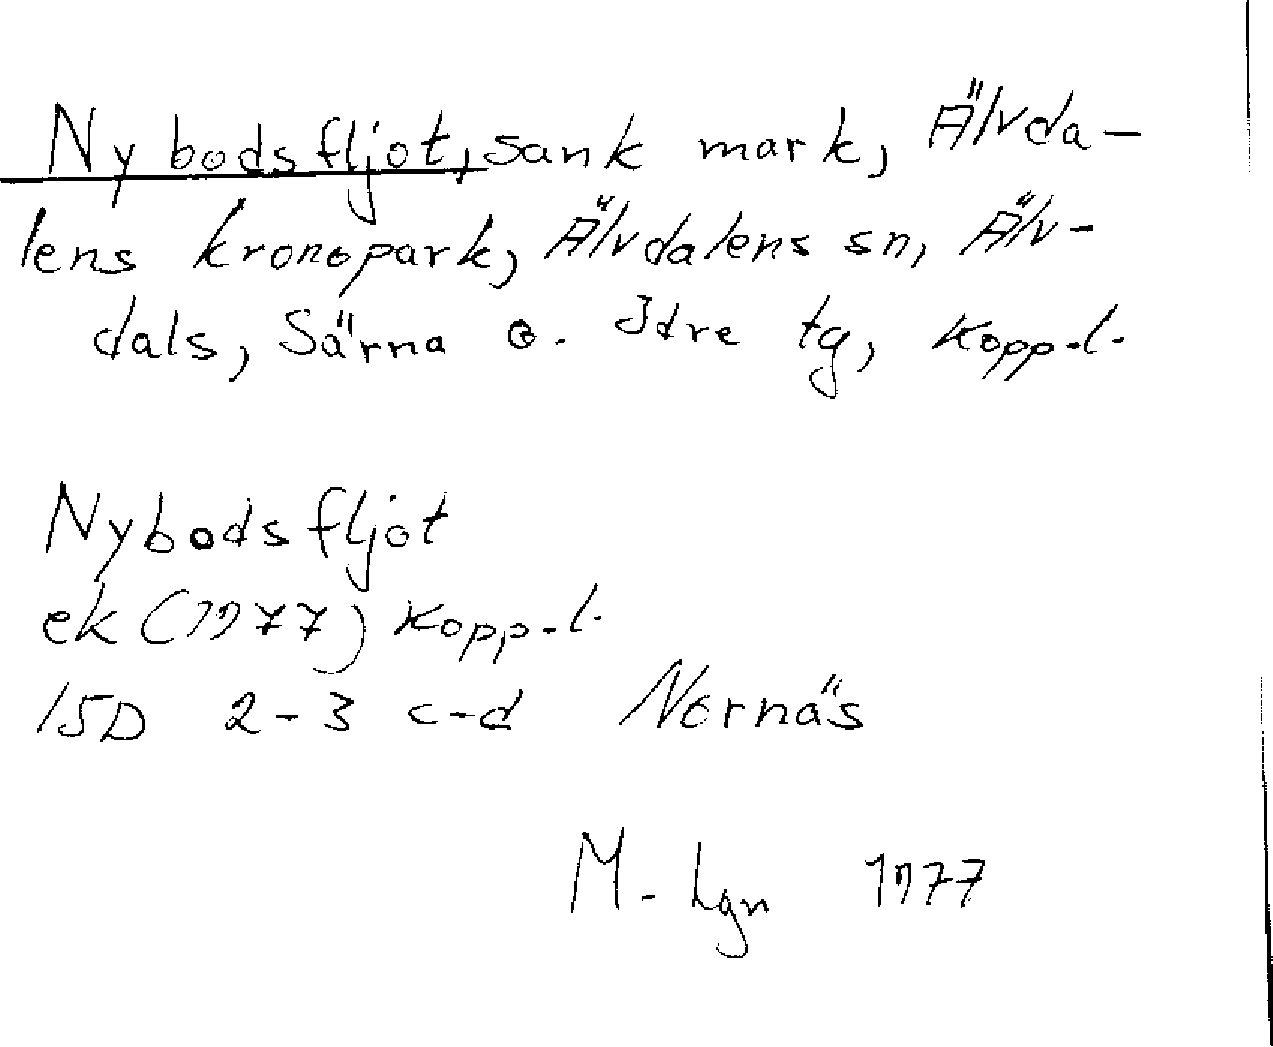 Nybodsfljot, sank mark, Älvda-
lens kronopark, Älvdalens sn, Älv-
dals, Särna o. Idre tg, Kopp.l.
Nybodsfljot
ek (1977) Kopp.l.
15D 2-3 c-d Nornäs
M. Lgn 1977